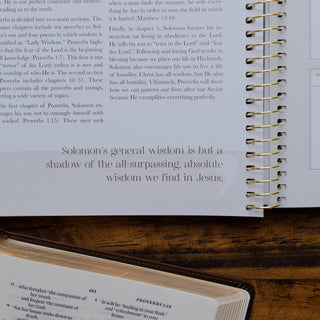 ds. He is our perfect counselor and mediator
eading us to the truth.
overbs is divided into two main sections. The
nine chapters include ten speeches to Solo-
n's son and four poems in which wisdom is
nified as "Lady Wisdom." Proverbs high-
s that the fear of the Lord is the beginning
ll knowledge (Proverbs 1:7). This fear is not
"terror" of the Lord; rather it is awe and
t worship of who He is. The second section
Proverbs includes chapters 10–31. These
pters contain all the proverbs and sayings,
ering a wide variety of topics.
he first chapter of Proverbs, Solomon en-
rages his son not to entangle himself with
wicked (Proverbs 1:15). These men seek
man who finds this treasure, he sells every-
thing he has in order to own the field in which
it is buried (Matthew 13:44).
Finally, in chapter 3, Solomon focuses his in-
struction on living in obedience to the Lord.
He will tell his son to "trust in the Lord" and "fear
the Lord." Following and loving God results in
blessing because we place our life in His hands.
Solomon also encourages his son to live a life
of humility. Christ has all wisdom, but He also
has all humility. Ultimately, Proverbs will show
how we can pattern our lives after our Savior
because He exemplifies everything perfectly.
Solomon's general wisdom is but a
shadow of the all-surpassing, absolute
wisdom we find in Jesus.
683
PROVERBS 3:10
17 who forsakes the companion of
her youth
and forgets the covenant of
her God;
18 for her house sinks down to
8 It will be healing to your flesh
and refreshment to your
bones.